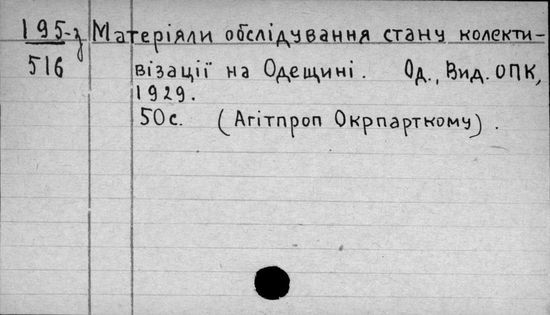 195-з Матеріяли обслідування стану колекти-
516 візації на Одещині. Од., Вид. ОПК,
1929.
50с. (Агітпроп Окрпарткому).